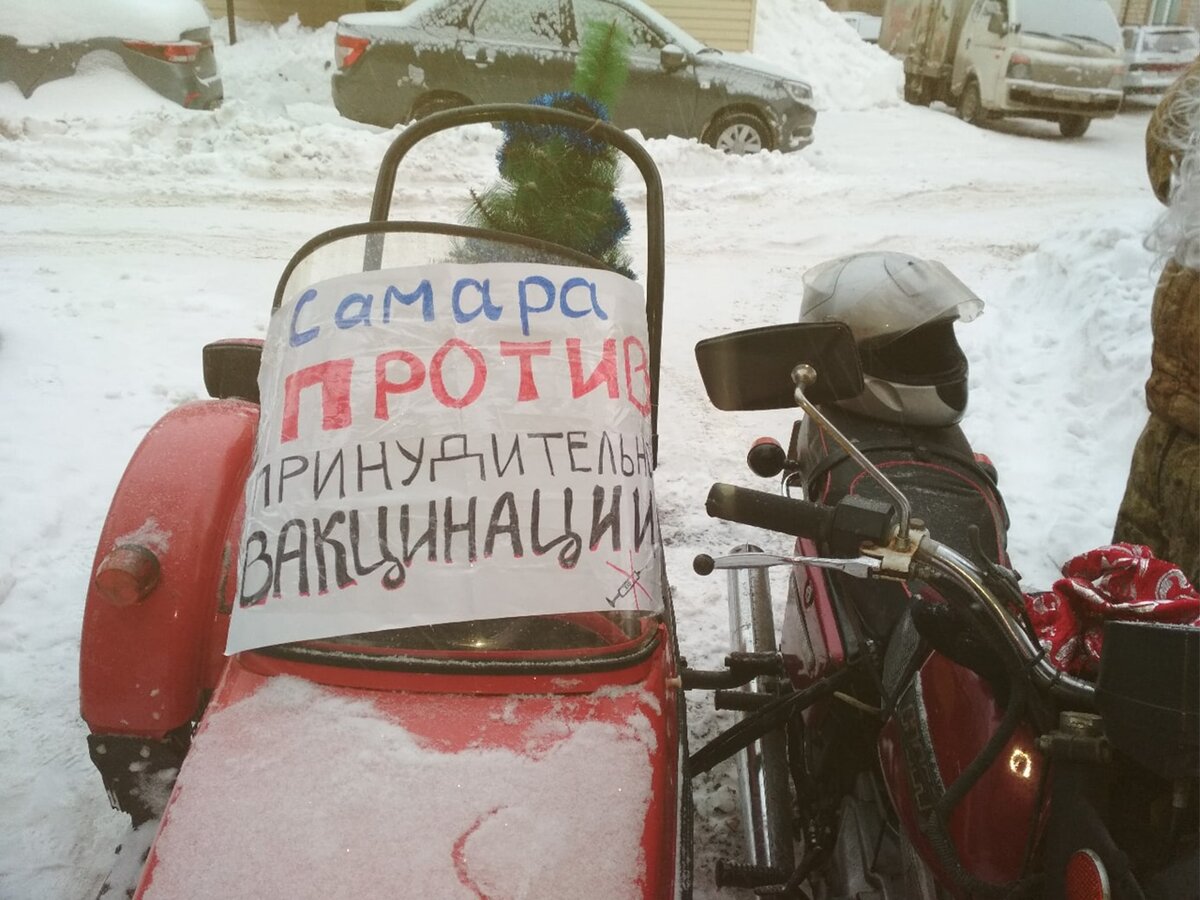 Самара
ПРОТИВ
ПРИНУДИТЕЛЬНО
ВАКЦИНАЦИИ